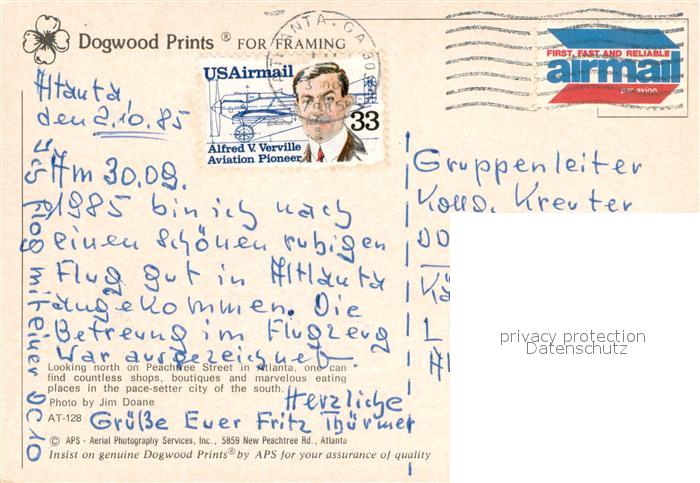 Dogwood Prints ® FOR FRAMING
ATLANTA, GA
USAirmail
33
Alfred V. Verville
Aviation Pioneer
FIRST, FAST AND RELIABLE
airmail
par avion
Atlanta,
den 2.10.85
Am 30.09.
1985 bin ich nach
einen schönen ruhigen
Flug gut in Altlauta
angekommen. Die
Betreung im Flugzeug
war ausgezeichnet.
Herzliche
Grüße Euer Fritz Thürmer
flog mit einer DC 10
Gruppenleiter
Koll. Kreuter
DD
Kä
L
Al
privacy protection
Datenschutz
Looking north on Peachtree Street in Atlanta, one can
find countless shops, boutiques and marvelous eating
places in the pace-setter city of the south.
Photo by Jim Doane
AT-128
© APS - Aerial Photography Services, Inc., 5859 New Peachtree Rd., Atlanta
Insist on genuine Dogwood Prints® by APS for your assurance of quality